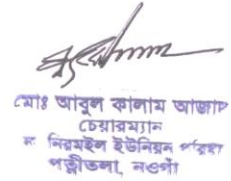 মোঃ আবুল কালাম আজাদ
চেয়ারম্যান
নং নিরমইল ইউনিয়ন পরিষদ
পত্নীতলা, নওগাঁ